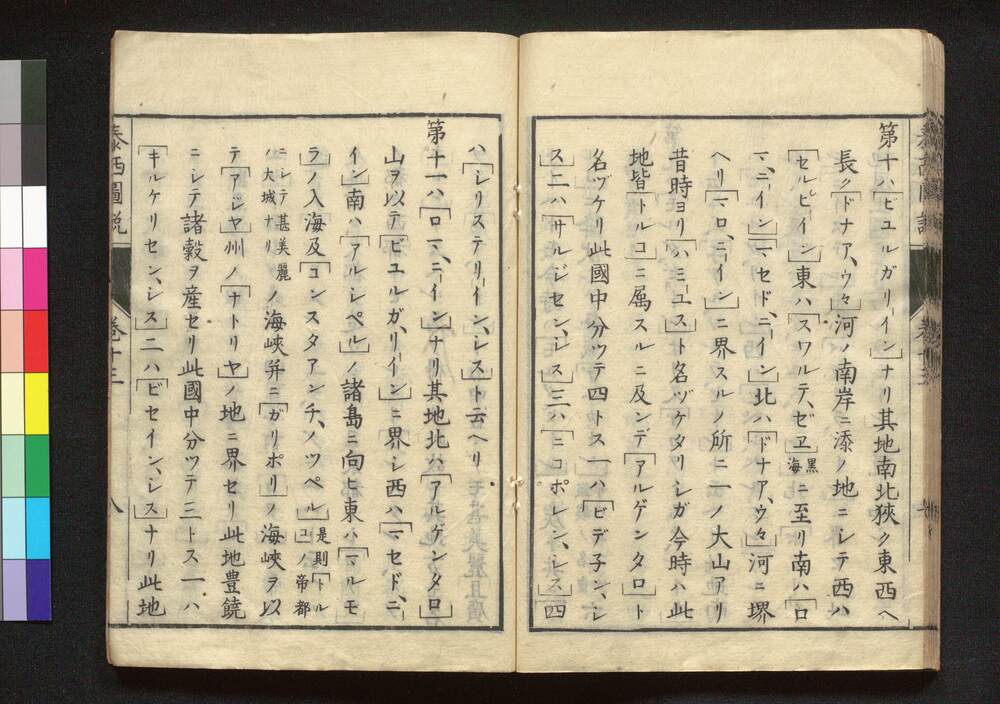 第十ハ「ビユルガリイン」ナリ其地南北狹ク東西ヘ
長ク「ドナア、ウ」々河ノ南岸ニ添ノ地ニシテ西ハ
「セルビイン」東ハ「スワルテ、ゼヱ」黒海ニ至リ南ハ「ロ
マ、ニイン」「マセドニイン」北ハ「ドナア、ウ」々河ニ堺
ヘリ「ロマ、ニイン」ニ界スルノ所ニ一ノ大山アリ
昔時ヨリ「ハミユス」ト名ヅケタリシガ今時ハ此
地皆「トルコ」ニ属スルニ及ンデ「アルゲンタロ」ト
名ヅケリ此國中分ツテ四トス一ハ「ビデ子ン、シ
ス」二ハ「サルジセン、シス」三ハ「ニコポレン、シス」四
ハ「シリステリイン、シス」ト云ヘリ
第十一ハ「ロマ、ニイン」ナリ其地北ハ「アルゲンタロ」
山ヲ以テ「ビユルガ、リイン」ニ界シ西ハ「マセド、ニ
イン」南ハ「アルシペル」ノ諸島ニ向ヒ東ハ「マルモ
ラ」ノ入海及「コンスタアンチ、ノツペル」是則「トルコ」ノ帝都
ニシテ甚美麗ノ大城ナリノ海峡并ニ「ガリポリ」ノ海峡ヲ以
テ「アジヤ」州ノ「ナトリヤ」ノ地ニ界セリ此地豊饒
ニシテ諸穀ヲ産セリ此國中分ツテ三トス一ハ
「キルケリセン、シス」二ハ「ビセイン、シス」ナリ此地
泰西圖説
卷十三
八